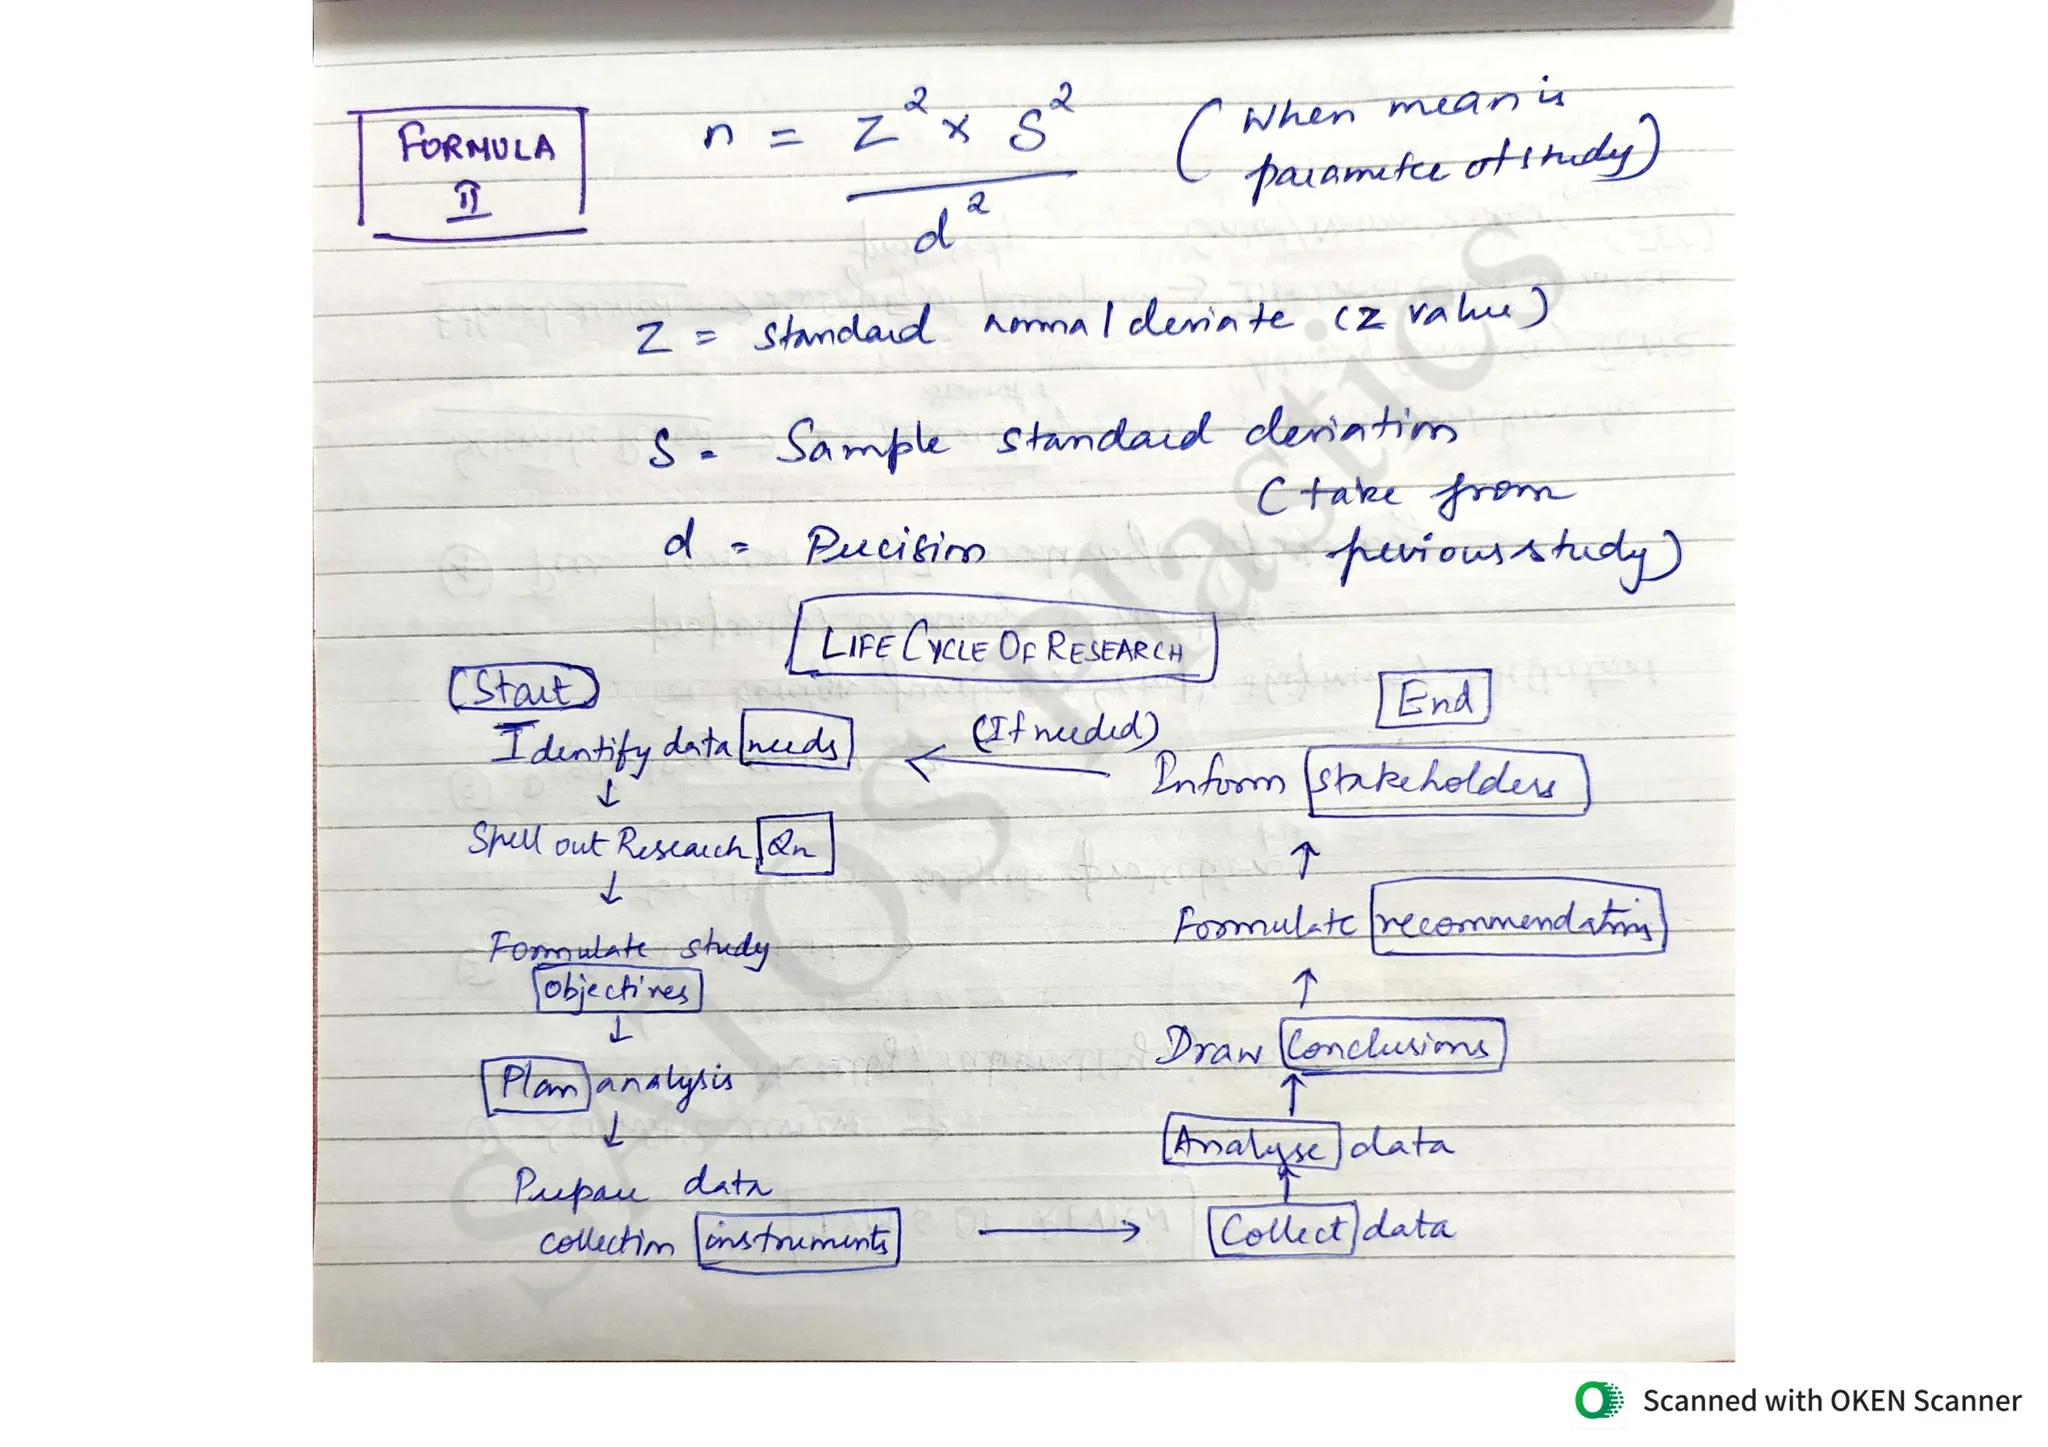 FORMULA
II
n = Z² × S² / d²
(When mean is
parameter of study)
Z = standard normal deviate (Z value)
S = Sample standard deviation
(take from
previous study)
d = Precision
LIFE CYCLE OF RESEARCH
Start
Identify data needs
↓
Spell out Research Qn
↓
Formulate study
objectives
↓
Plan analysis
↓
Prepare data
collection instruments
→
Collect data
↑
Analyse data
↑
Draw Conclusions
↑
Formulate recommendations
↑
Inform stakeholders
End
← (If needed)
SAIOS Plastics
Scanned with OKEN Scanner